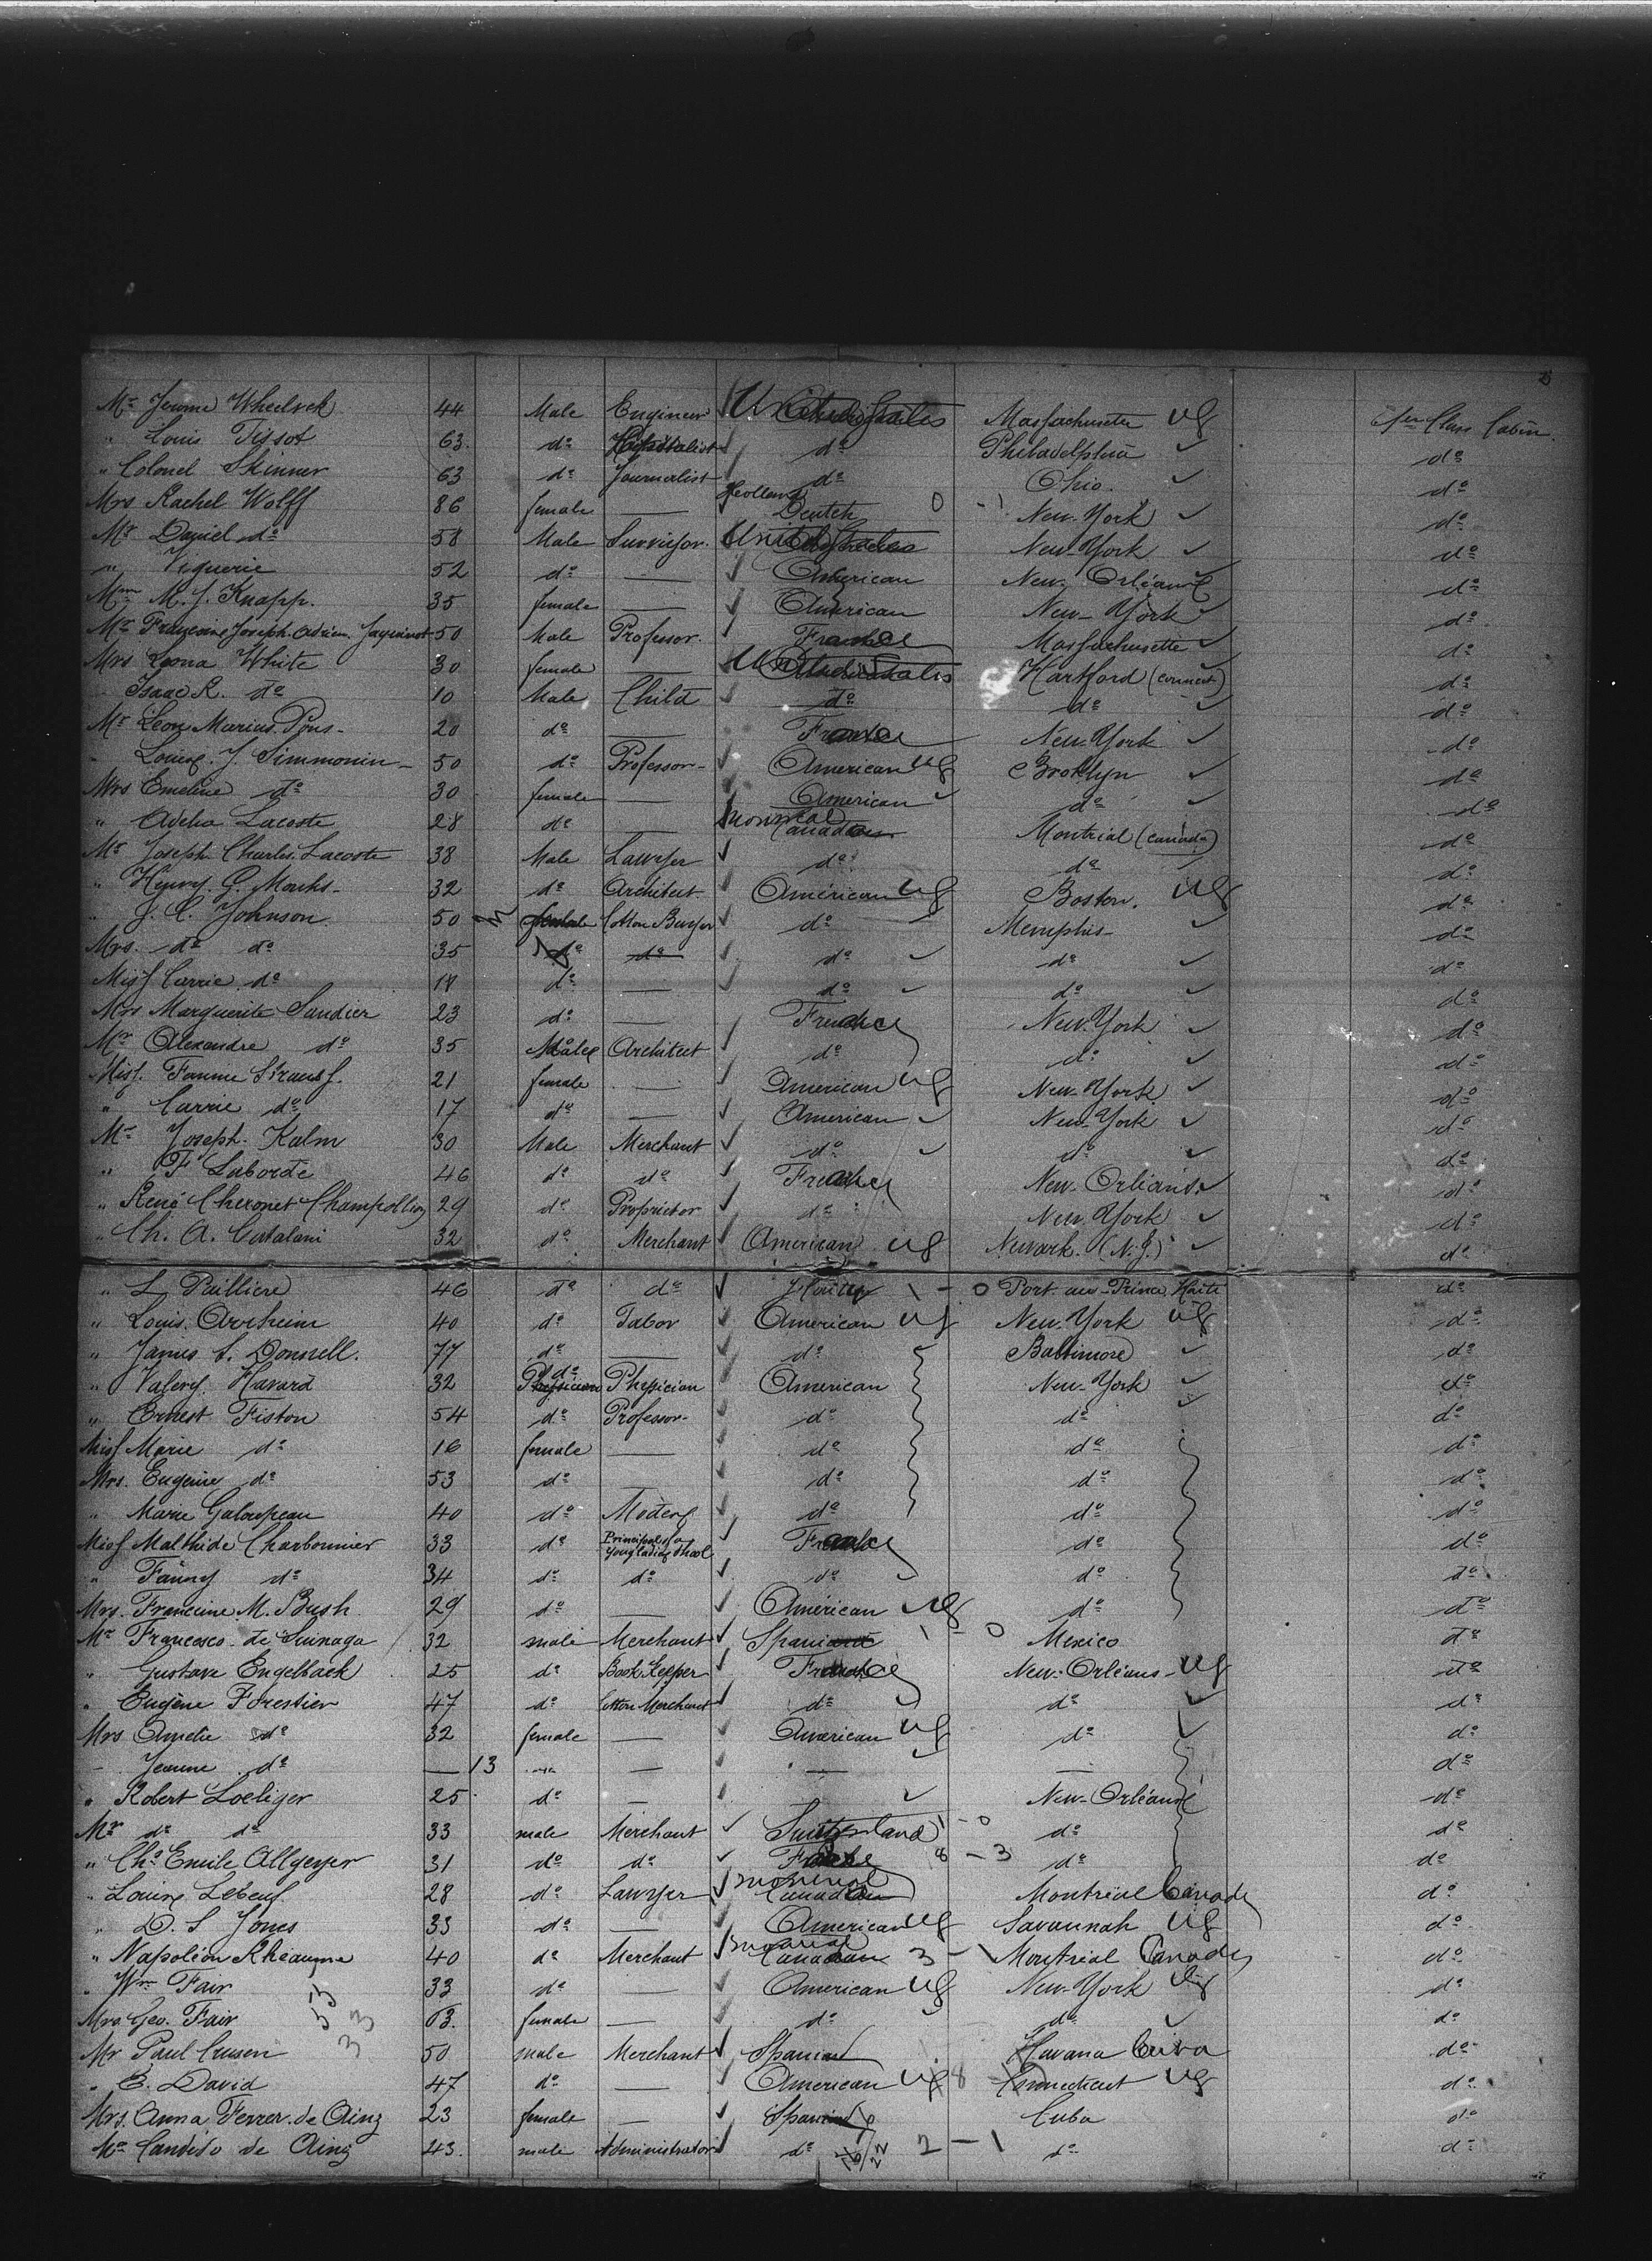 Mr Jerome Wheelock 44 Male Engineer United States Massachusetts US 1er Class Cabin
" Louis Tissot 63 do Capitalist do Philadelphia do
" Colonel Skinner 63 do Journalist do Ohio do
Mrs Rachel Wolff 86 female — Holland Deutch 0 - 1 New-York do
Mr Daniel do 58 Male United States New-York do
" Viguerie 52 do — American New-Orléans do
M. J. Knapp. 35 female — American New-York do
Mr Joseph Adrien Jaquinot 50 Male Professor. France Massachusetts do
Mrs Leona White 30 female — United States Hartford (connect) do
Isaac R. do 10 Male Child do do do
Mr Leon Marius Pons 20 do — France New-York do
J. Simmonin 50 do Professor American US Broklyn do
Mrs Emeline do 30 female — American do do
" Adelia Lacoste 28 do — Montreal Montrial (Canada) do
Mr Joseph Charles Lacoste 38 Male Lawyer do do do
" Henry G. Marks 32 do Architect American US Boston. US do
" J. C. Johnson 50 M female Cotton Buyer do Memphis do
Mrs. do do 35 do do do do do
Miss Carrie do 18 do — do do do
Mrs Marguerite Sandier 23 do — France New-York do
Mr Alexandre do 35 Male Architect do do do
Miss. Fannie Strauss. 21 female — American US New-York do
" Carrie do 17 do — American New-York do
Mr Joseph Kalm 30 Male Merchant do do do
" F Laborde 46 do do France New-Orléans do
" René Cheronet Champollion 29 do Proprietor do New York do
" Ch. A. Catalani 32 do Merchant American US Newark. (N.J.) do
" L. Paillière 46 do do 1 - 0 Port-au-Prince Haiti do
" Louis 40 do American US New-York US do
" James S. Donnell. 77 do — do Baltimore do
" Valery Havard 32 do Physician American New-York do
" Ernest Fiston 54 do Professor do do do
Miss Marie do 16 female — do do do
Mrs. Eugénie do 53 do — do do do
" Marie Galoupeau 40 do do do do
Miss Malthide Charbonnier 33 do France do do
" Fanny do 34 do do do do do
Mrs. Francine M. Bush 29 do — American US do do
Mr Francesco de Suinaga 32 male Merchant Spaniard 1 - 0 Mexico do
" Gustave Engelback 25 do Book Keeper France New-Orléans US do
" Eugène Forestier 47 do Cotton Merchant do do do
Mrs Amélie do 32 female — American US do do
Jeanne do — 13 — — — do
" Robert Loeliger 25 do — — New-Orléans do
Mr do do 33 male Merchant Switzerland 1 - 0 do do
" Chs Emile Allgeyer 31 do do France 8 - 3 do do
" Lebeuf 28 do Lawyer Montreal Montréal Canada do
" D. S Jones 33 do — American US Savannah US do
" Napoléon Rhéaume 40 do Merchant Montreal Canadian 3 - 1 Montréal Canada do
" Wm Fair 53 33 do — American US New-York US do
Mrs. Geo. Fair 33 63. female — do do do
Mr Paul Crusen 50 male Merchant Havana Cuba do
" E. David 47 do — American US 8 Connecticut US do
Mrs. Anna Ferrer de Ainz 23 female — Cuba do
Mr Candido de Ainz 43. male Administrator do 2 - 1 do do